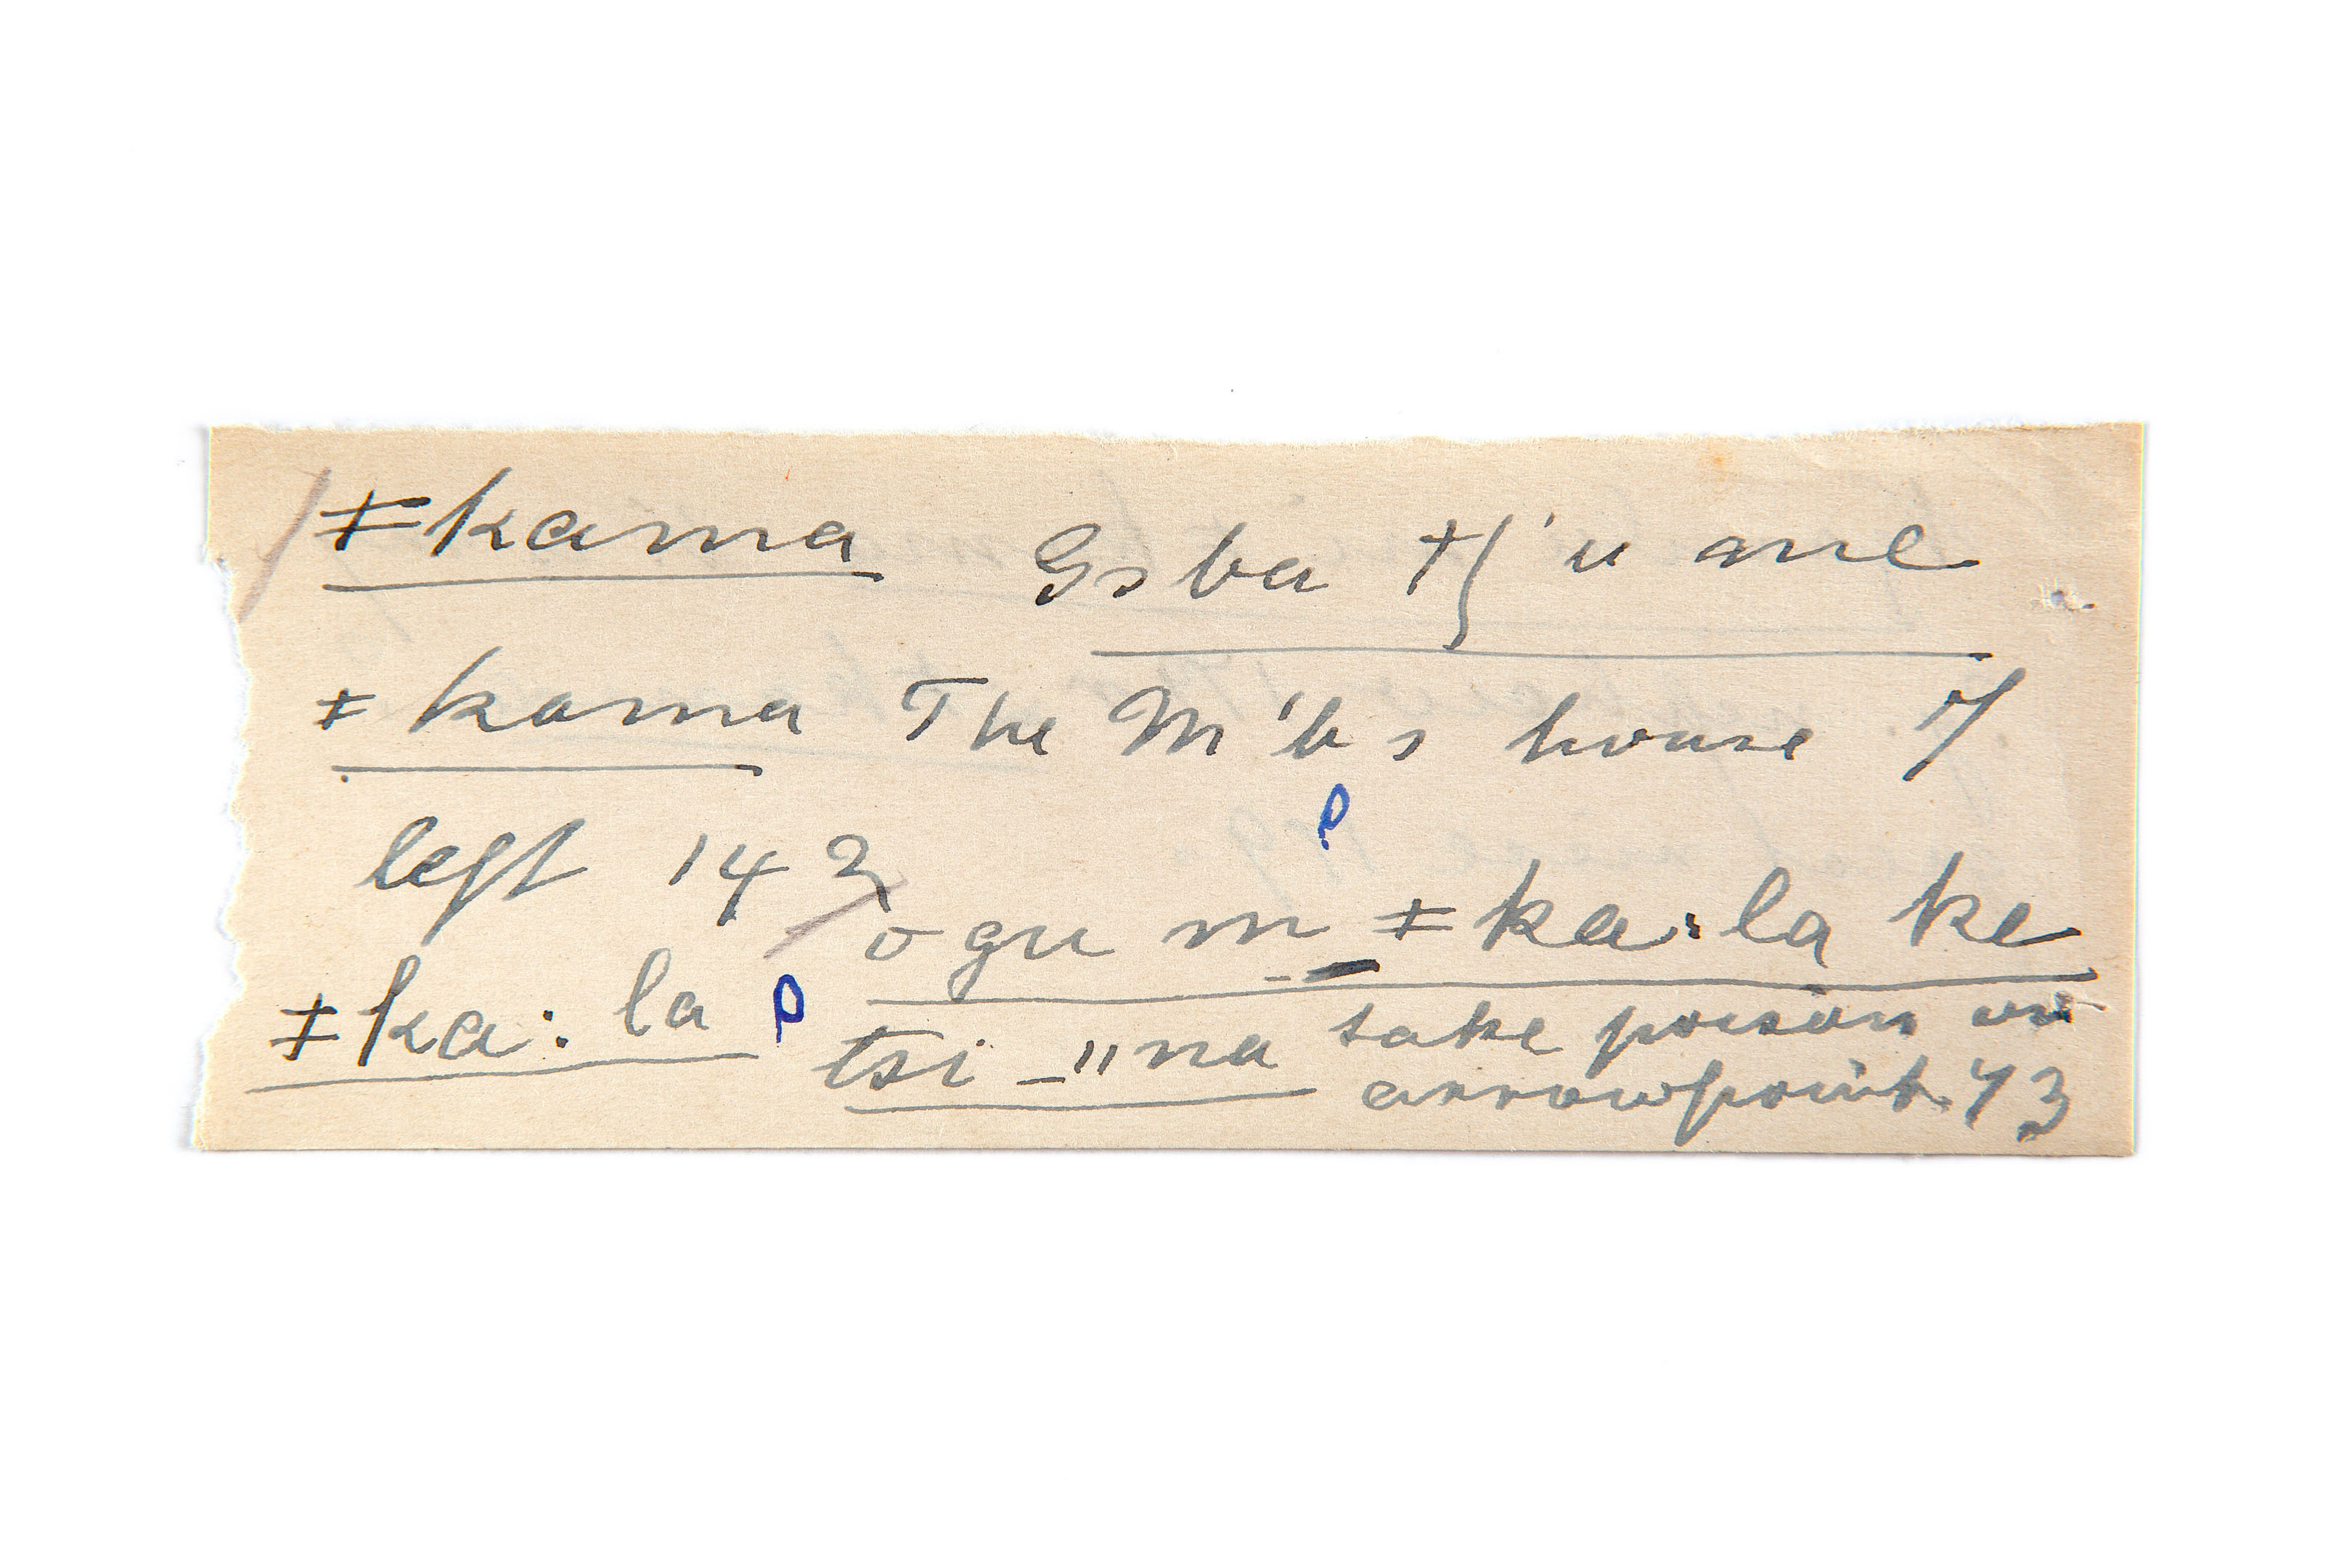 ǂkama Gsba ʒ'u ame
ǂkama The M'b s house I
left 142
ogu m ǂka:la ke
ǂka:la
tsi -"na take poison on
arrowpoint 43